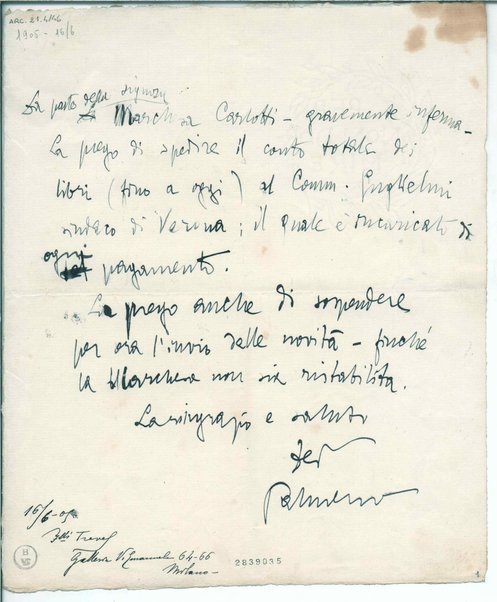 ARC. 21.4/46
1905 - 16/6
Da parte della signora
March.sa Carlotti - gravemente inferma -
La prego di spedire il conto totale dei
libri (fino a oggi) al Comm. Guglielmi
sindaco di Verona; il quale è incaricato di
ogni pagamento.
La prego anche di sospendere
per ora l'invio delle novità - finché
la Marchesa non sia ristabilita.
La ringrazio e saluto
16/6-05
F.lli Treves
Galleria V. Emanuele 64-66
Milano -
2839035